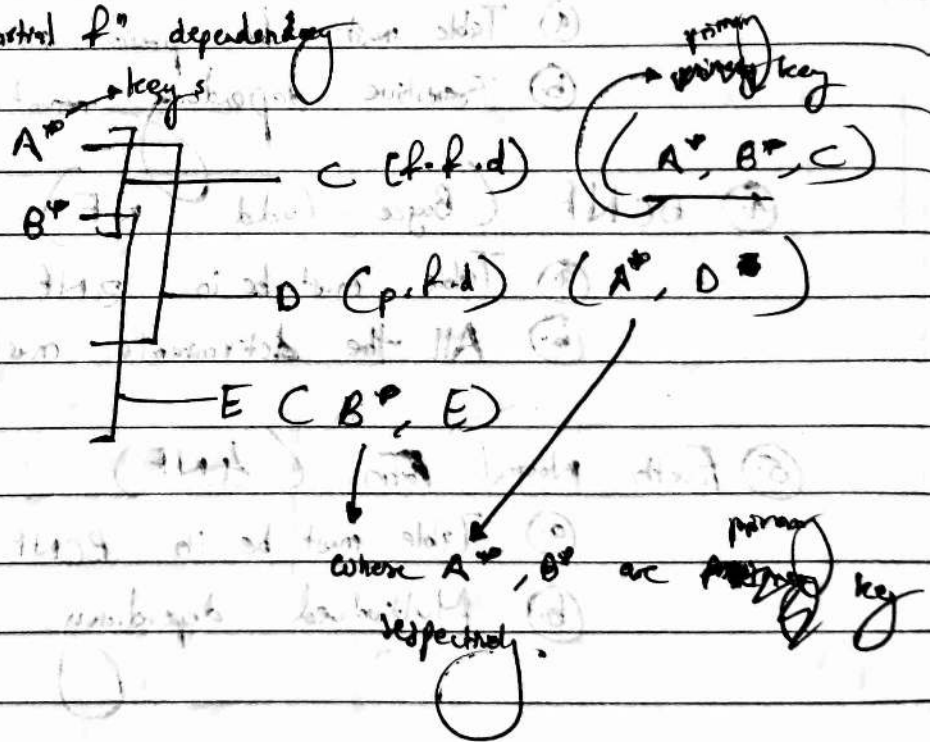 artial fⁿ dependency
primary
key
A* keys
C (f.f.d) (A*, B*, C)
B*
D (p.f.d) (A*, D)
E (B*, E)
where A*, B* are primary key
respectively.